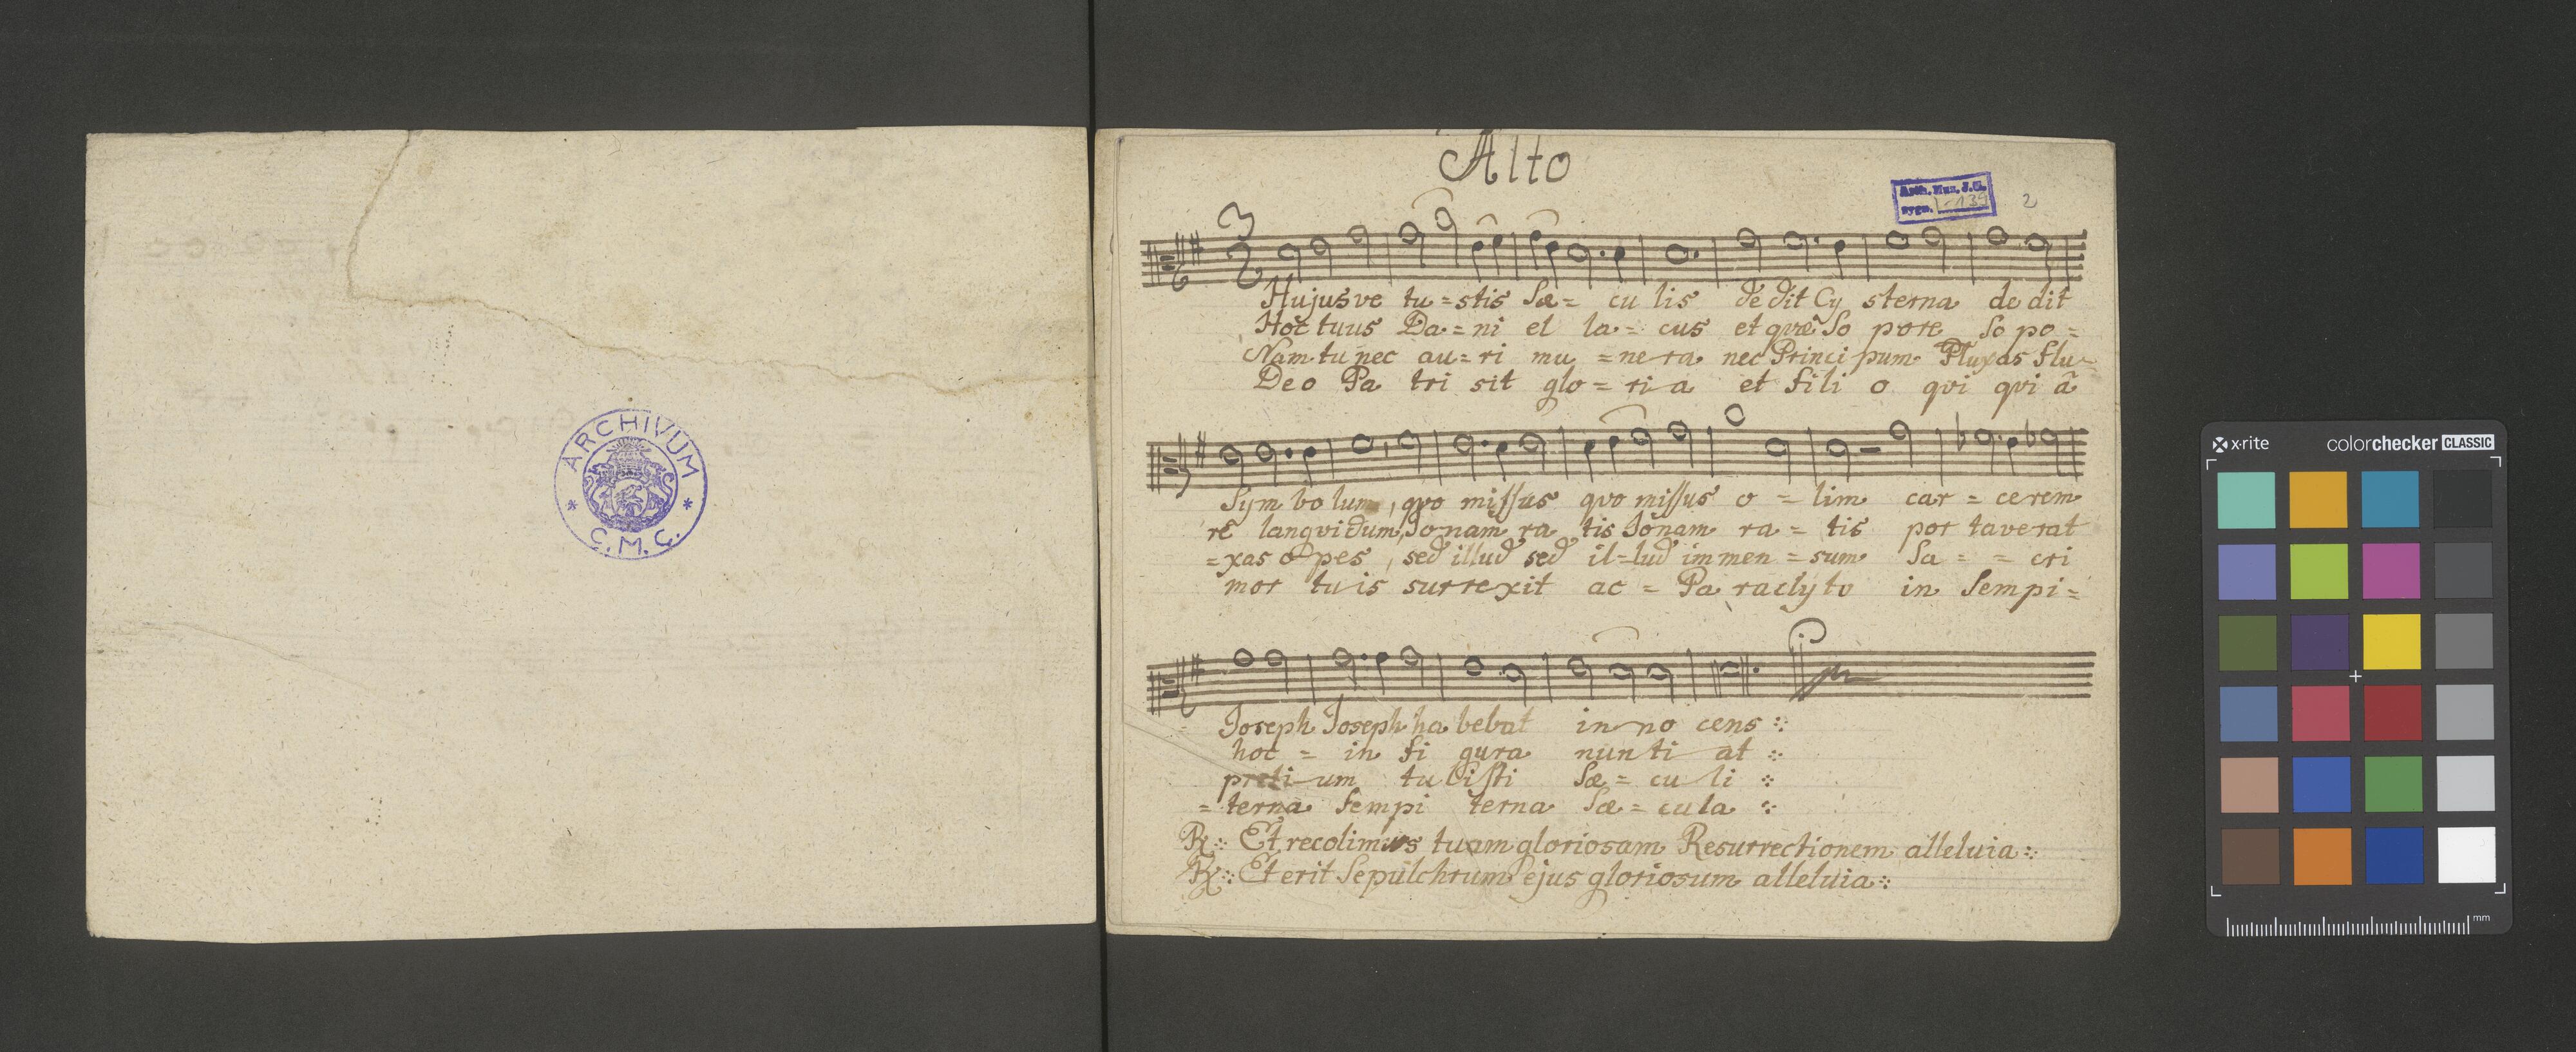 ARCHIVUM
C. M. C.
Alto
Arch. Muz. J. G.
sygn. I-139
2
3
2
Hujus ve tu=stis Sæ= cu lis de dit Cy sterna de dit
Hoc tuus Da=ni el la= cus et quæ So pore So po=
Nam tu nec au=ri mu =ne ra nec Princi pum Fluxas flu-
Deo Pa tri sit glo=ri a et fili o qvi qvi á
Sym bo lum, qvo missus qvo missus o = lim car = ce rem
re langvidum, Jonam ra tis Jonam ra = tis por taverat
=xas opes, sed illud sed il=lud immen=sum Sa = = cri
mor tu is surrexit ac = Pa raclyto in Sempi=
Joseph Joseph ha bebat in no cens
hoc = in fi gura nun ti at
preti um tulisti Sæ= cu li
=terna sempi terna Sæ= cula
R: Et recolimus tuam gloriosam Resurrectionem alleluia
R: Et erit Sepulchrum ejus gloriosum alleluia
x-rite
colorchecker CLASSIC
mm